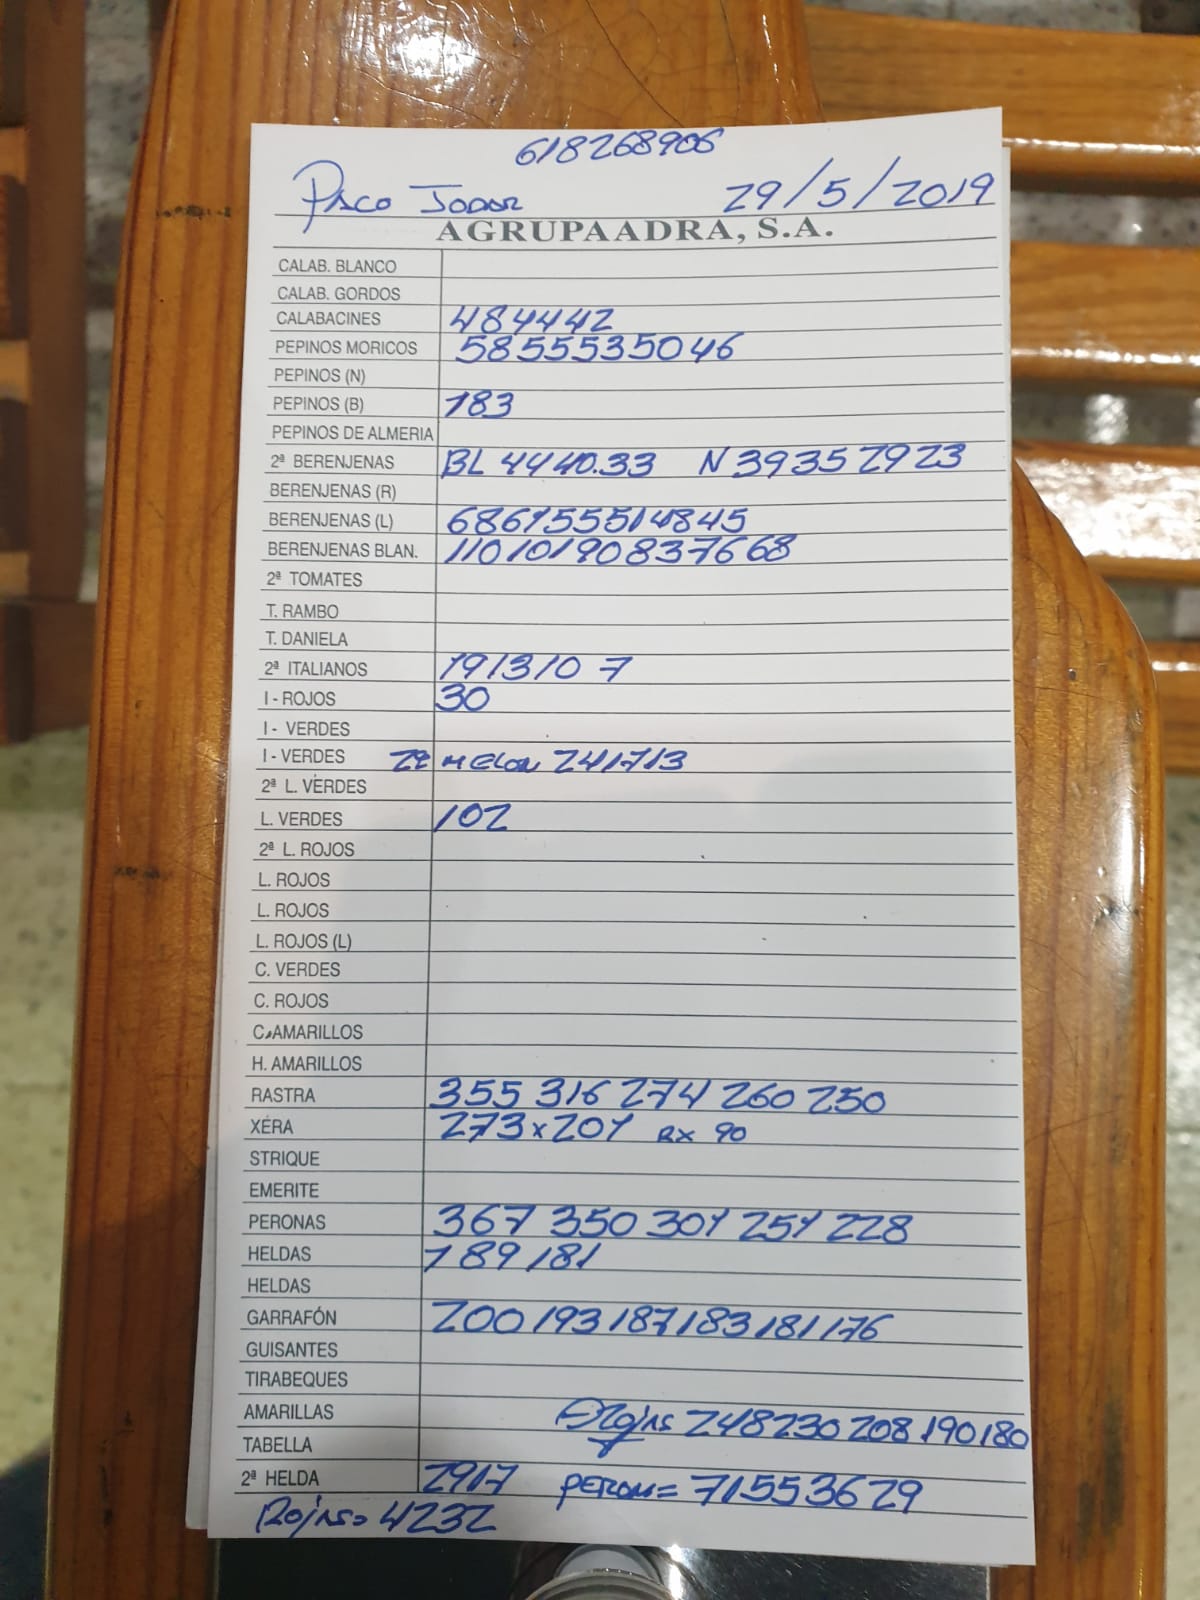 618268906
Paco Jodar 29/5/2019
AGRUPAADRA, S.A.
CALAB. BLANCO
CALAB. GORDOS
CALABACINES 484442
PEPINOS MORICOS 5855535046
PEPINOS (N)
PEPINOS (B) 183
PEPINOS DE ALMERIA
2ª BERENJENAS BL 4440.33 N 39352923
BERENJENAS (R)
BERENJENAS (L) 686155514845
BERENJENAS BLAN. 11010190837668
2ª TOMATES
T. RAMBO
T. DANIELA
2ª ITALIANOS 191310 7
I - ROJOS 30
I - VERDES
I - VERDES 2ª MELON 241713
2ª L. VERDES
L. VERDES 102
2ª L. ROJOS
L. ROJOS
L. ROJOS
L. ROJOS (L)
C. VERDES
C. ROJOS
C. AMARILLOS
H. AMARILLOS
RASTRA 355 316 274 260 250
XÉRA 273 x 201 RX 90
STRIQUE
EMERITE
PERONAS 367 350 301 251 228
HELDAS 189 181
HELDAS
GARRAFÓN 200 193 187 183 181 176
GUISANTES
TIRABEQUES
AMARILLAS 248 230 208 190 180
TABELLA
2ª HELDA 2917 PERONA= 71553629
Rojas= 4232